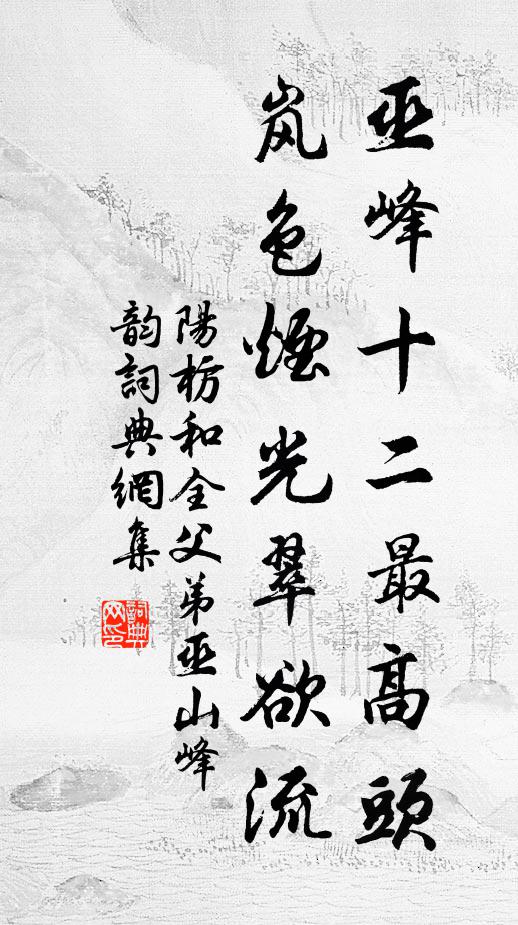 巫峰十二最高頭
岚色煙光翠欲流
陽枋和全父弟巫山峰
韵詞典網集
詞典网印